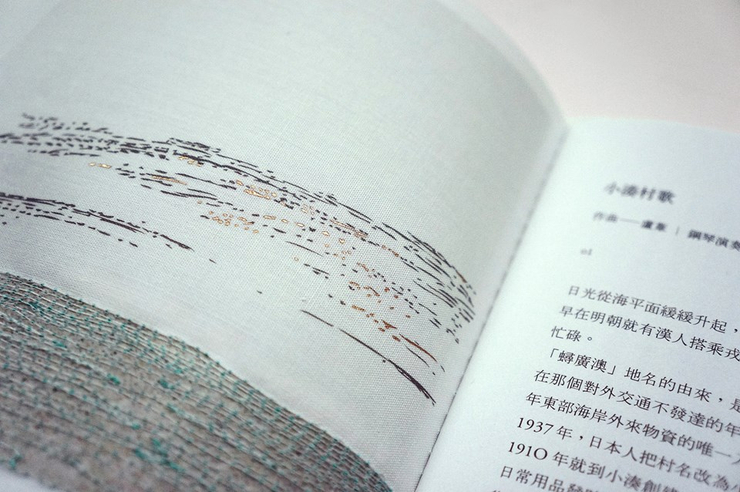 小湊村歌
作曲——盧葦 | 鋼琴演奏
01
日光從海平面緩緩升起，
早在明朝就有漢人搭乘戎
忙碌。
「蟳廣澳」地名的由來，是
在那個對外交通不發達的年
年東部海岸外來物資的唯一
1937年，日本人把村名改為
1910年就到小湊創
日常用品發